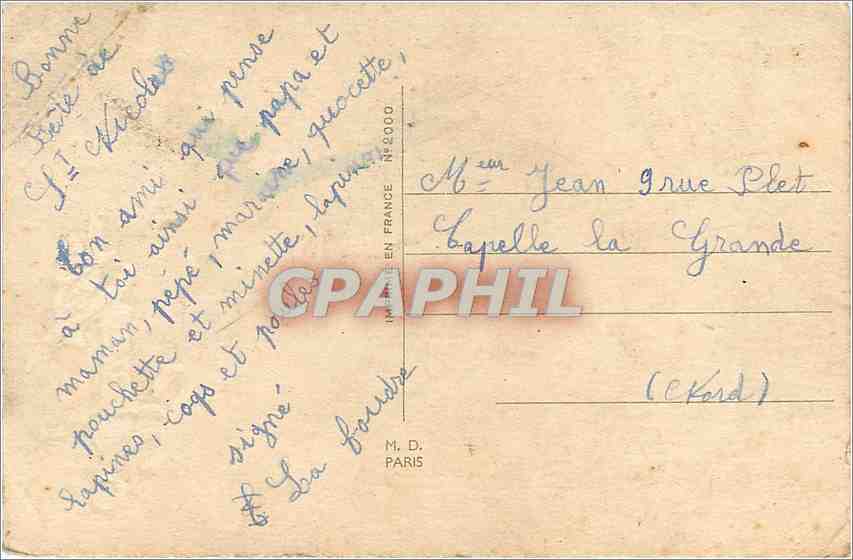 Bonne
Fête de
St Nicolas
ton ami qui pense
à toi ainsi que papa et
maman, pépé, maraine, quocette,
pouchette et minette, lapino,
lapines, coqs et poules
signé
La foudre
IMPRIMÉ EN FRANCE N° 2000
M. D.
PARIS
Meur Jean 9 rue Plet
Capelle la Grande
(Nord)
CPAPHIL